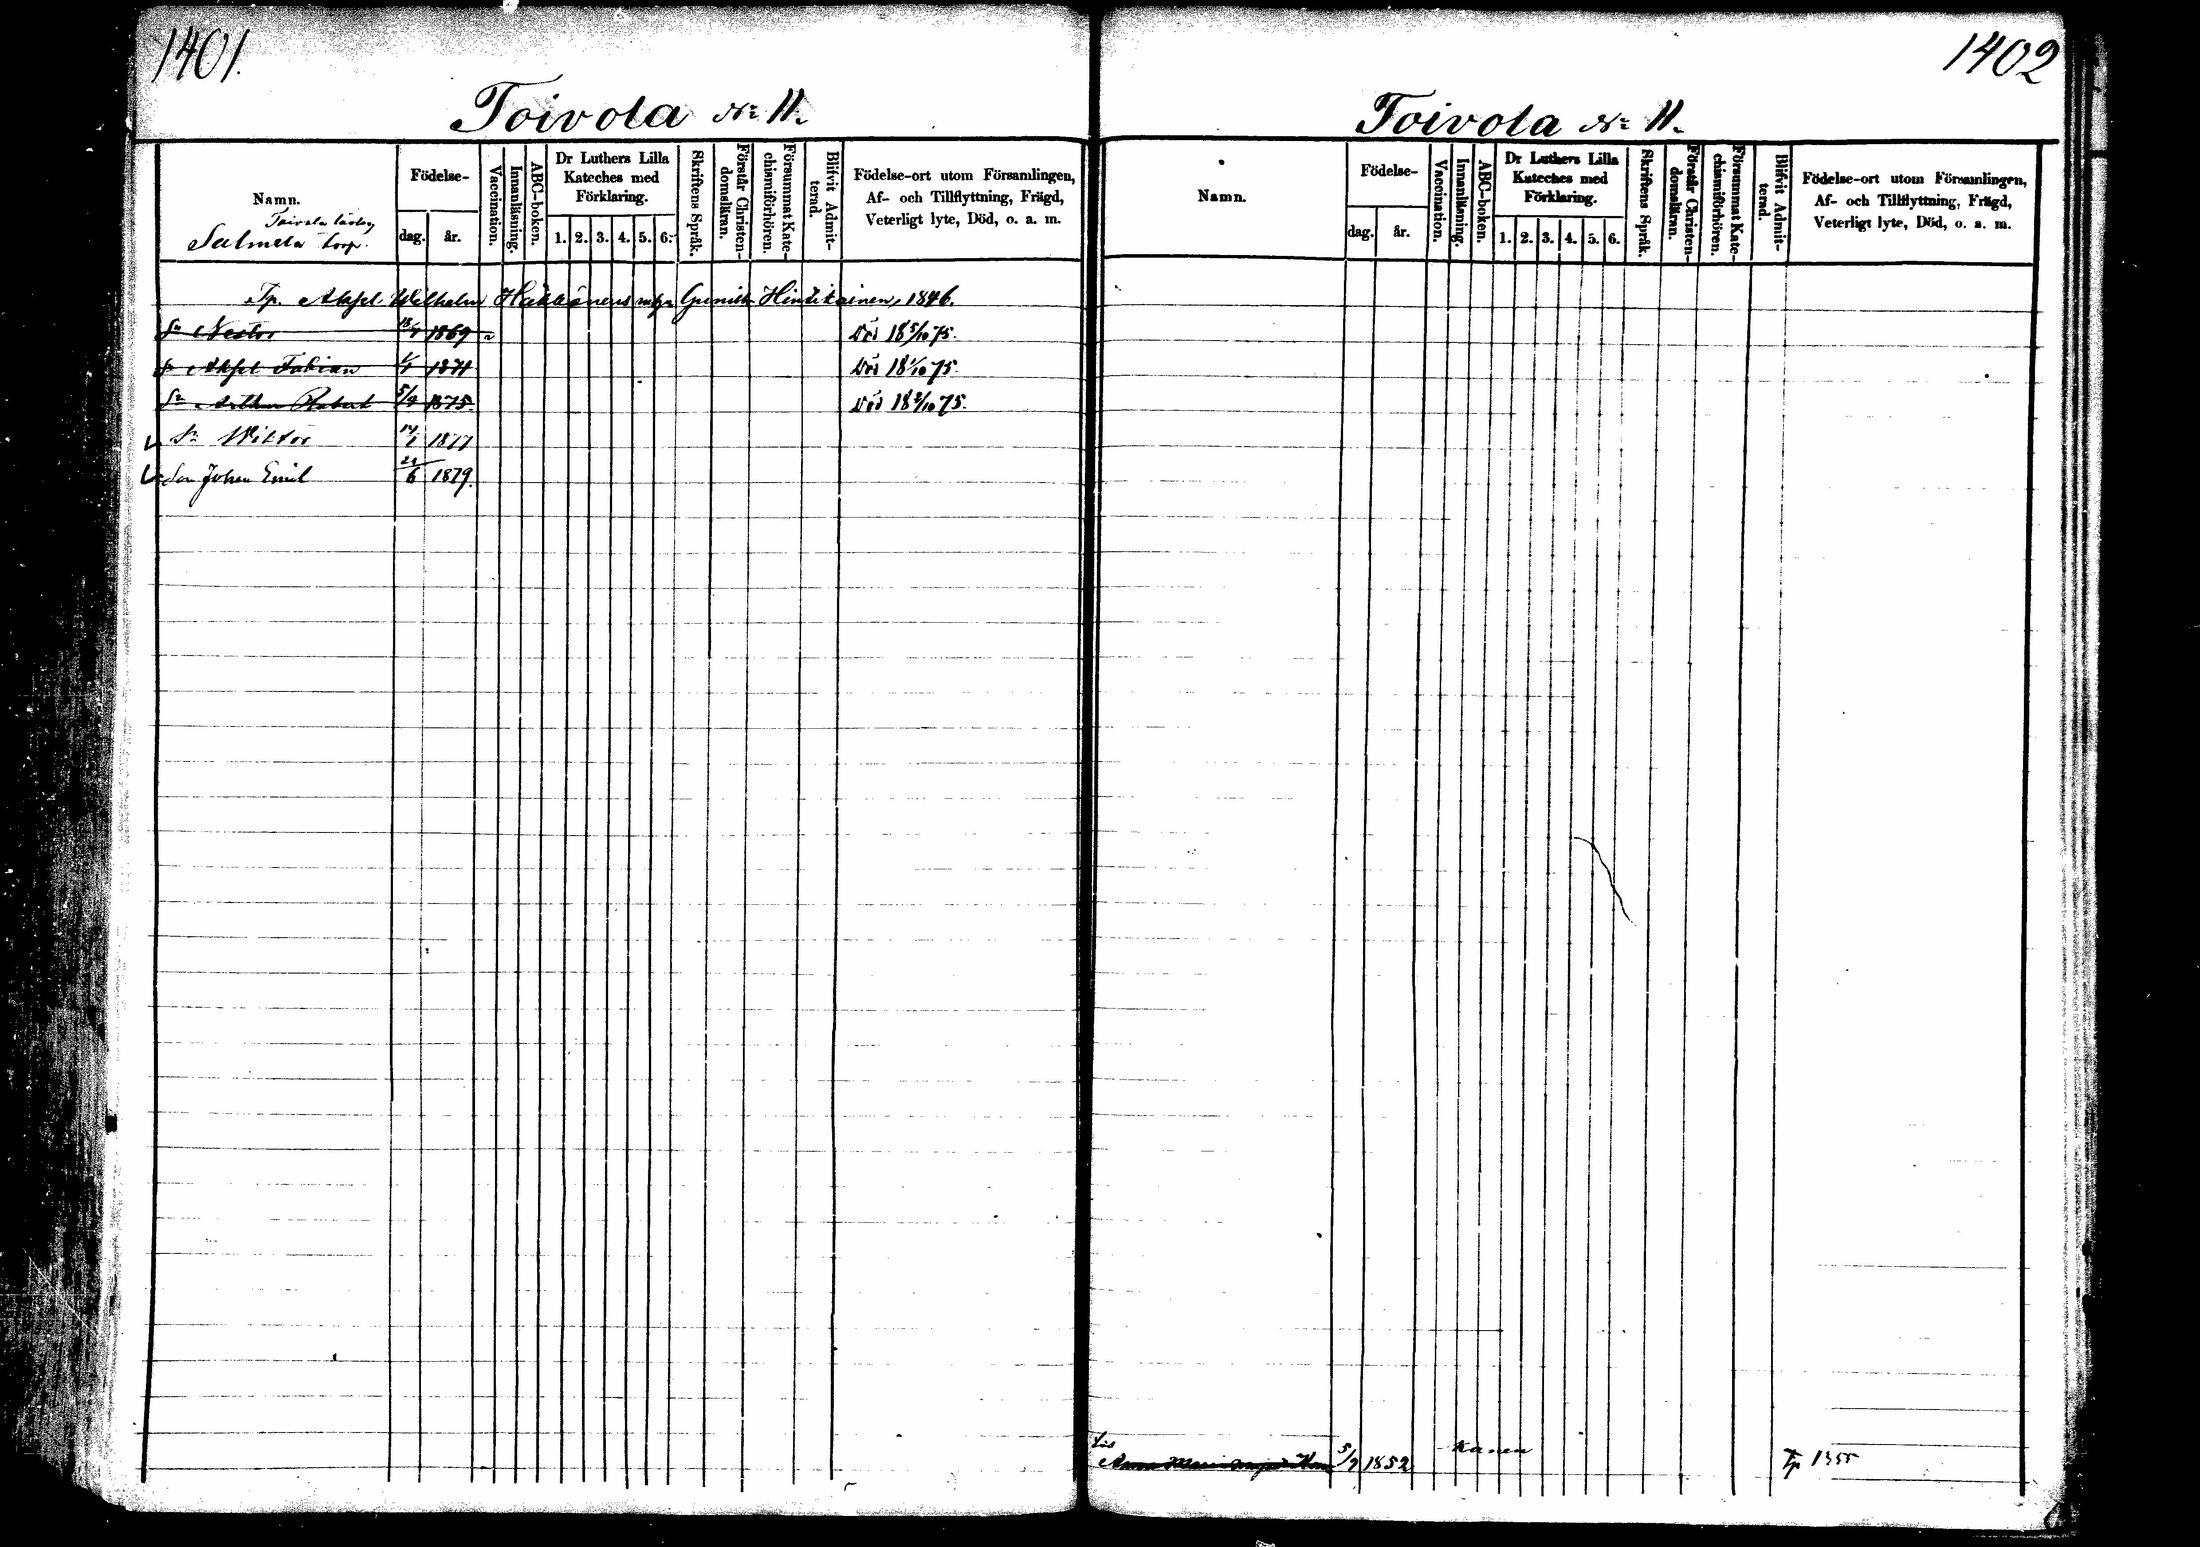 1401.
Toivola No 11.
Namn.
Födelse-
dag. år.
Vaccination.
Innanläsning.
ABC-boken.
Dr Luthers Lilla
Kateches med
Förklaring.
1. 2. 3. 4. 5. 6.
Skriftens Språk.
Förstår Christen-
domsläran.
Försummat Kate-
chismiförhören.
Blifvit Admit-
terad.
Födelse-ort utom Församlingen,
Af- och Tillflyttning, Frägd,
Veterligt lyte, Död, o. a. m.
Toivola
Salmela torp.
Tp. Aksel Wilhelm Häkkänens Hintikainen, 1846.
Sn Nestor 1869 Död 18 5/10 75.
Sn Aksel Fabian 1871 Död 18 1/10 75.
Sn Arthur Robert 1875. Död 18 2/10 75.
Sn Wiktor 1877
Son Johan Emil 1879.
1402
Toivola No 11.
Namn.
Födelse-
dag. år.
Vaccination.
Innanläsning.
ABC-boken.
Dr Luthers Lilla
Kateches med
Förklaring.
1. 2. 3. 4. 5. 6.
Skriftens Språk.
Förstår Christen-
domsläran.
Försummat Kate-
chismiförhören.
Blifvit Admit-
terad.
Födelse-ort utom Församlingen,
Af- och Tillflyttning, Frägd,
Veterligt lyte, Död, o. a. m.
Anna 1852 kanen 1355